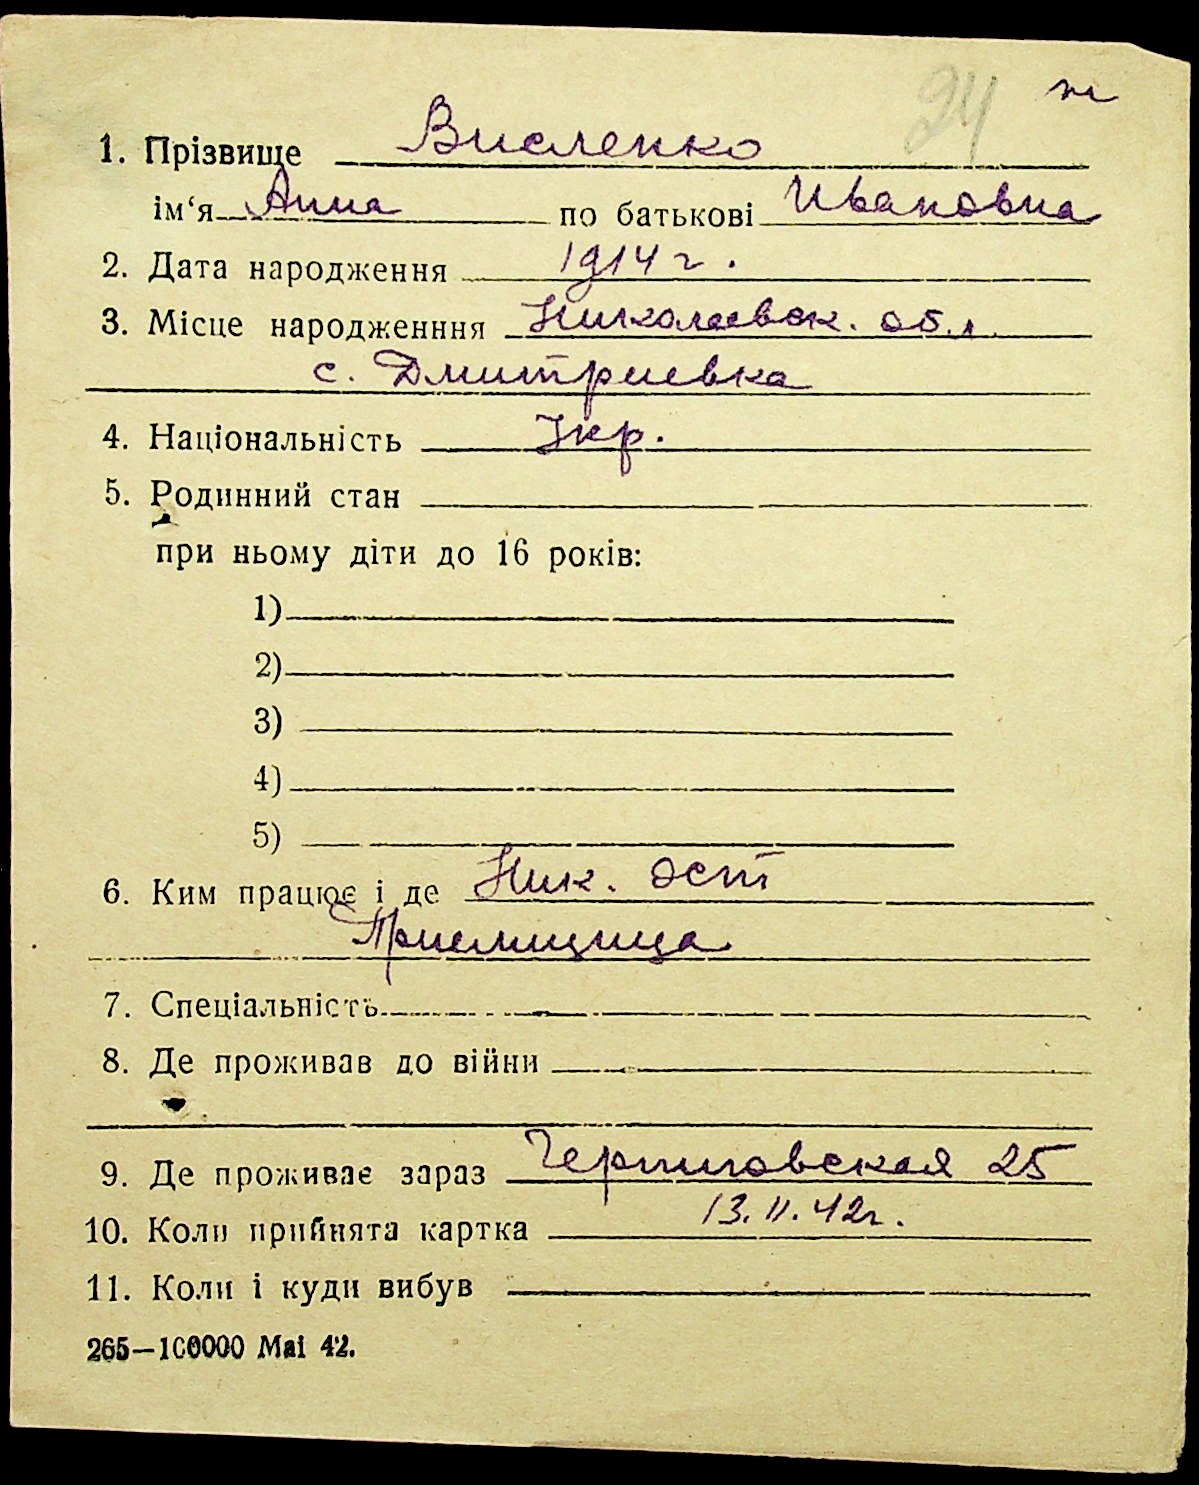 24 ж
1. Прізвище Висленко
ім‘я Анна по батькові Ивановна
2. Дата народження 1914 г.
3. Місце народженння Николаевск. обл.
с. Дмитриевка
4. Національність Укр.
5. Родинний стан
при ньому діти до 16 років:
1)
2)
3)
4)
5)
6. Ким працює і де Ник. ост
Приемщица
7. Спеціальність
8. Де проживав до війни
9. Де проживає зараз Черниговская 25
10. Коли прийнята картка 13.II.42г.
11. Коли і куди вибув
265—100000 Mai 42.